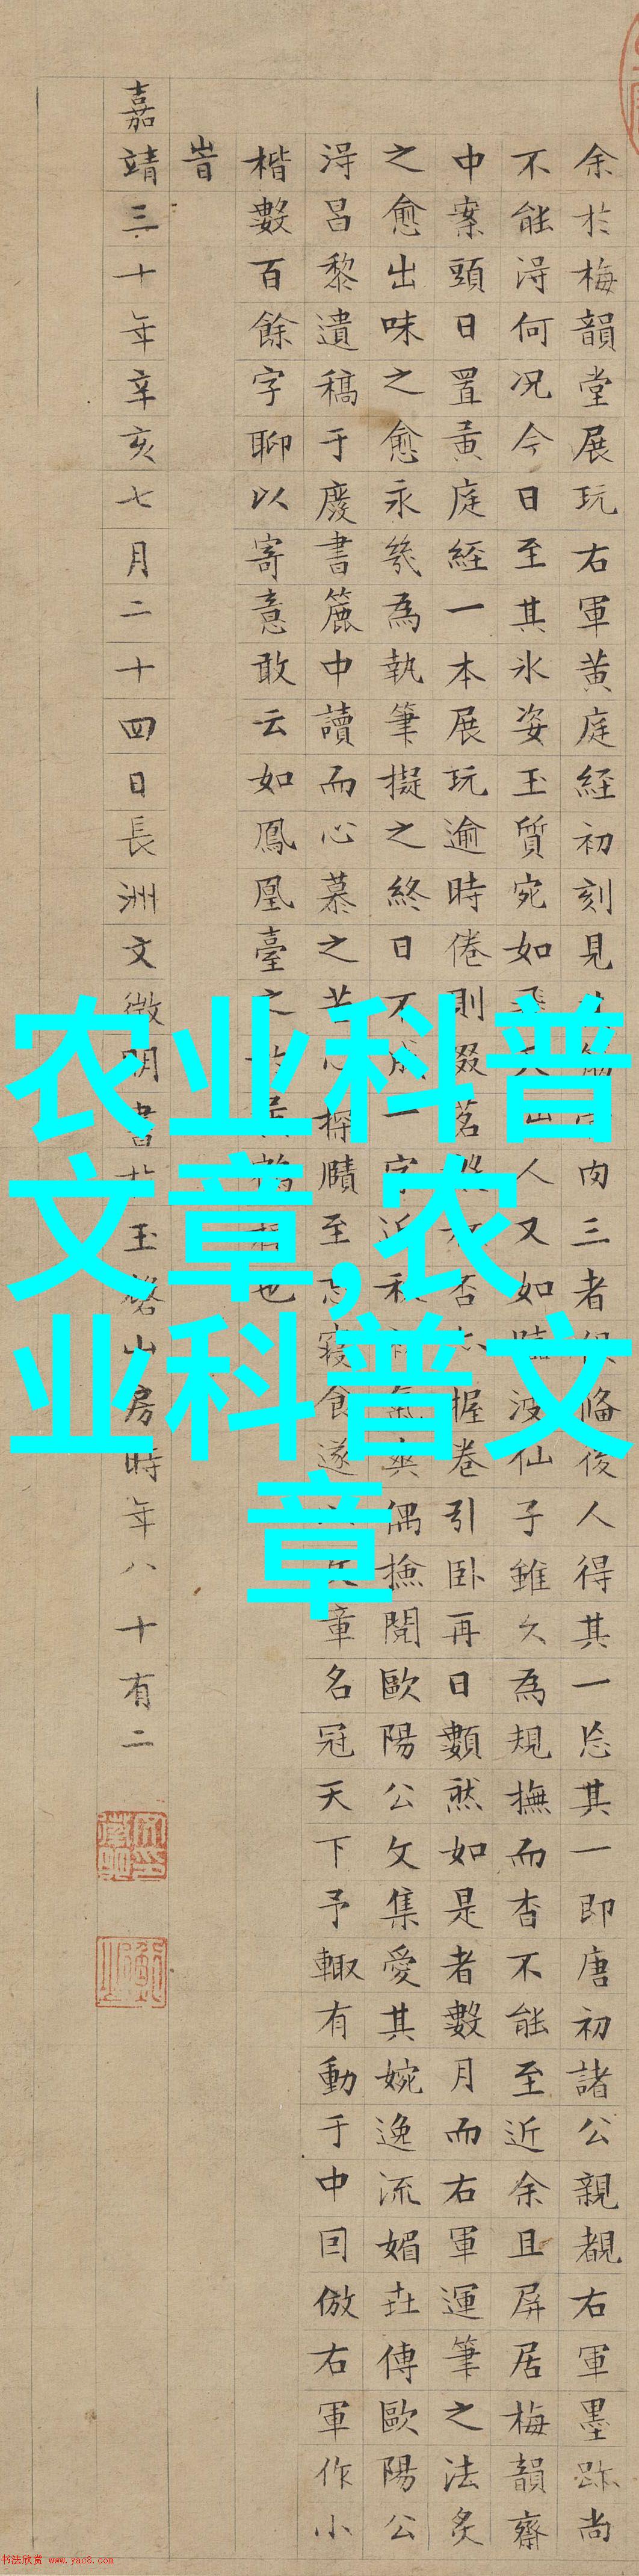 余於梅韻堂展玩右軍黃庭経初刻見肉三者俱俻後人得其一忘其一即唐初諸公親覩右軍墨跡尚
不能淂何况今日至其氷姿玉質宛如人又如臨波仙子雖久為規撫而杳不能至近余且屏居梅韻齋
中案頭日置黃庭経一本展玩逾時倦則啜茗否握卷引卧再日數然如是者數月而右軍運筆之法炙
之愈出味之愈永㡬為執筆擬之終日不成一字近爽偶撿閱歐陽公文集愛其婉逸流媚在傳歐陽公
淂呂黎遺稿于廢書簏中讀而心慕之苦心探賾至忘寢食遂章名冠天下予輙有動于中囙倣右軍作小
楷數百餘字聊以寄意敢云如鳳凰臺之也
旹
嘉靖三十年辛亥七月二十四日長洲文徵明書於玉磬山房時年八十有二
农业科普
文章,农
业科普文
章
书法欣赏 www.yac8.com